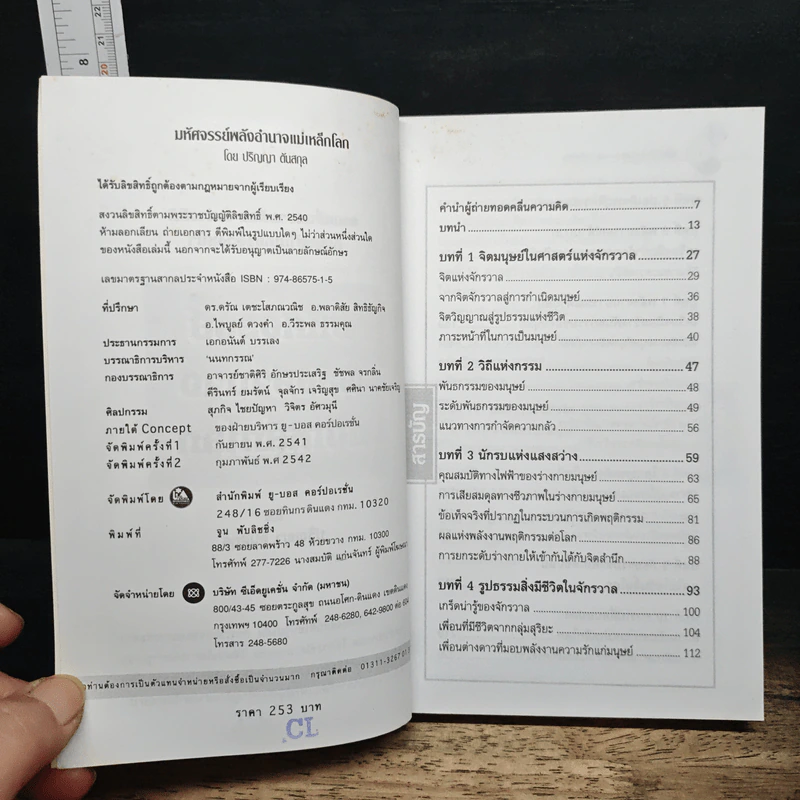 8
22
21
20
มหัศจรรย์พลังอำนาจแม่เหล็กโลก
โดย ปริญญา ตันสกุล
ได้รับลิขสิทธิ์ถูกต้องตามกฎหมายจากผู้เรียบเรียง
สงวนลิขสิทธิ์ตามพระราชบัญญัติลิขสิทธิ์ พ.ศ. 2540
ห้ามลอกเลียน ถ่ายเอกสาร ตีพิมพ์ในรูปแบบใดๆ ไม่ว่าส่วนหนึ่งส่วนใด
ของหนังสือเล่มนี้ นอกจากจะได้รับอนุญาตเป็นลายลักษณ์อักษร
เลขมาตรฐานสากลประจำหนังสือ ISBN : 974-86575-1-5
ที่ปรึกษา ดร.ดรัณ เตชะโสภณวณิช อ.พลาดิสัย สิทธิธัญกิจ
อ.ไพบูลย์ ตวงคำ อ.วีระพล ธรรมคุณ
ประธานกรรมการ เอกอนันต์ บรรเลง
บรรณาธิการบริหาร 'นนทกรรณ'
กองบรรณาธิการ อาจารย์ชาติศิริ อักษรประเสริฐ ชัชพล จรกลิ่น
คีรินทร์ ยมรัตน์ จุลจักร เจริญสุข ศศินา นาคชัยเจริญ
ศิลปกรรม สุภกิจ ไชยปัญหา วิจิตร อัศวมุนี
ภายใต้ Concept ของฝ่ายบริหาร ยู-บอส คอร์ปอเรชั่น
จัดพิมพ์ครั้งที่1 กันยายน พ.ศ. 2541
จัดพิมพ์ครั้งที่2 กุมภาพันธ์ พ.ศ. 2542
จัดพิมพ์โดย สำนักพิมพ์ ยู-บอส คอร์ปอเรชั่น
248/16 ซอยทินกร ดินแดง กทม. 10320
พิมพ์ที่ จูน พับลิชชิ่ง
88/3 ซอยลาดพร้าว 48 ห้วยขวาง กทม. 10300
โทรศัพท์ 277-7226 นางสมบัติ แก่นจันทร์ ผู้พิมพ์โฆษณา
จัดจำหน่ายโดย บริษัท ซีเอ็ดยูเคชั่น จำกัด (มหาชน)
800/43-45 ซอยตระกูลสุข ถนนอโศก-ดินแดง เขตดินแดง
กรุงเทพฯ 10400 โทรศัพท์ 248-6280, 642-9800 ต่อ
โทรสาร 248-5680
ท่านต้องการเป็นตัวแทนจำหน่ายหรือสั่งซื้อเป็นจำนวนมาก กรุณาติดต่อ 01311-3267
ราคา 253 บาท
CL
สารบัญ
คำนำผู้ถ่ายทอดคลื่นความคิด 7
บทนำ 13
บทที่ 1 จิตมนุษย์ในศาสตร์แห่งจักรวาล 27
จิตแห่งจักรวาล 29
จากจิตจักรวาลสู่การกำเนิดมนุษย์ 36
จิตวิญญาณสู่รูปธรรมแห่งชีวิต 38
ภาระหน้าที่ในการเป็นมนุษย์ 40
บทที่ 2 วิถีแห่งกรรม 47
พันธกรรมของมนุษย์ 48
ระดับพันธกรรมของมนุษย์ 49
แนวทางการกำจัดความกลัว 56
บทที่ 3 นักรบแห่งแสงสว่าง 59
คุณสมบัติทางไฟฟ้าของร่างกายมนุษย์ 63
การเสียสมดุลทางชีวภาพในร่างกายมนุษย์ 65
ข้อเท็จจริงที่ปรากฏในกระบวนการเกิดพฤติกรรม 81
ผลแห่งพลังงานพฤติกรรมต่อโลก 86
การยกระดับร่างกายให้เข้ากันได้กับจิตสำนึก 88
บทที่ 4 รูปธรรมสิ่งมีชีวิตในจักรวาล 93
เกร็ดน่ารู้ของจักรวาล 100
เพื่อนที่มีชีวิตจากกลุ่มสุริยะ 104
เพื่อนต่างดาวที่มอบพลังงานความรักแก่มนุษย์ 112